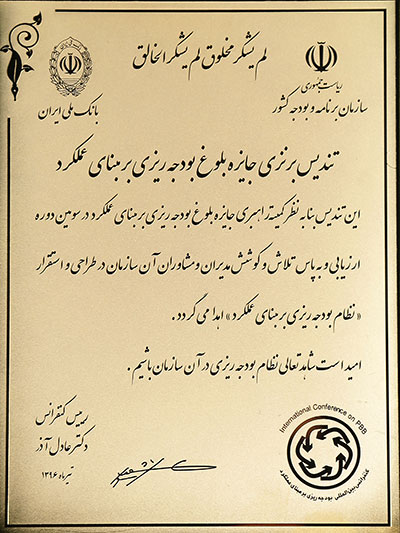 لم یشکر مخلوق لم یشکر الخالق
ریاست جمهوری
سازمان برنامه و بودجه کشور
بانک ملی ایران
تندیس برنزی جایزه بلوغ بودجه ریزی بر مبنای عملکرد
این تندیس بنا به نظر کمیته راهبری جایزه بلوغ بودجه ریزی بر مبنای عملکرد در سومین دوره
ارزیابی و به پاس تلاش و کوشش مدیران و مشاوران آن سازمان در طراحی و استقرار
« نظام بودجه ریزی بر مبنای عملکرد » اهدا می گردد .
امید است شاهد تعالی نظام بودجه ریزی در آن سازمان باشیم .
رییس کنفرانس
دکتر عادل آذر
تیرماه ۱۳۹۶
International Conference on PBB
کنفرانس بین‌المللی بودجه ریزی بر مبنای عملکرد